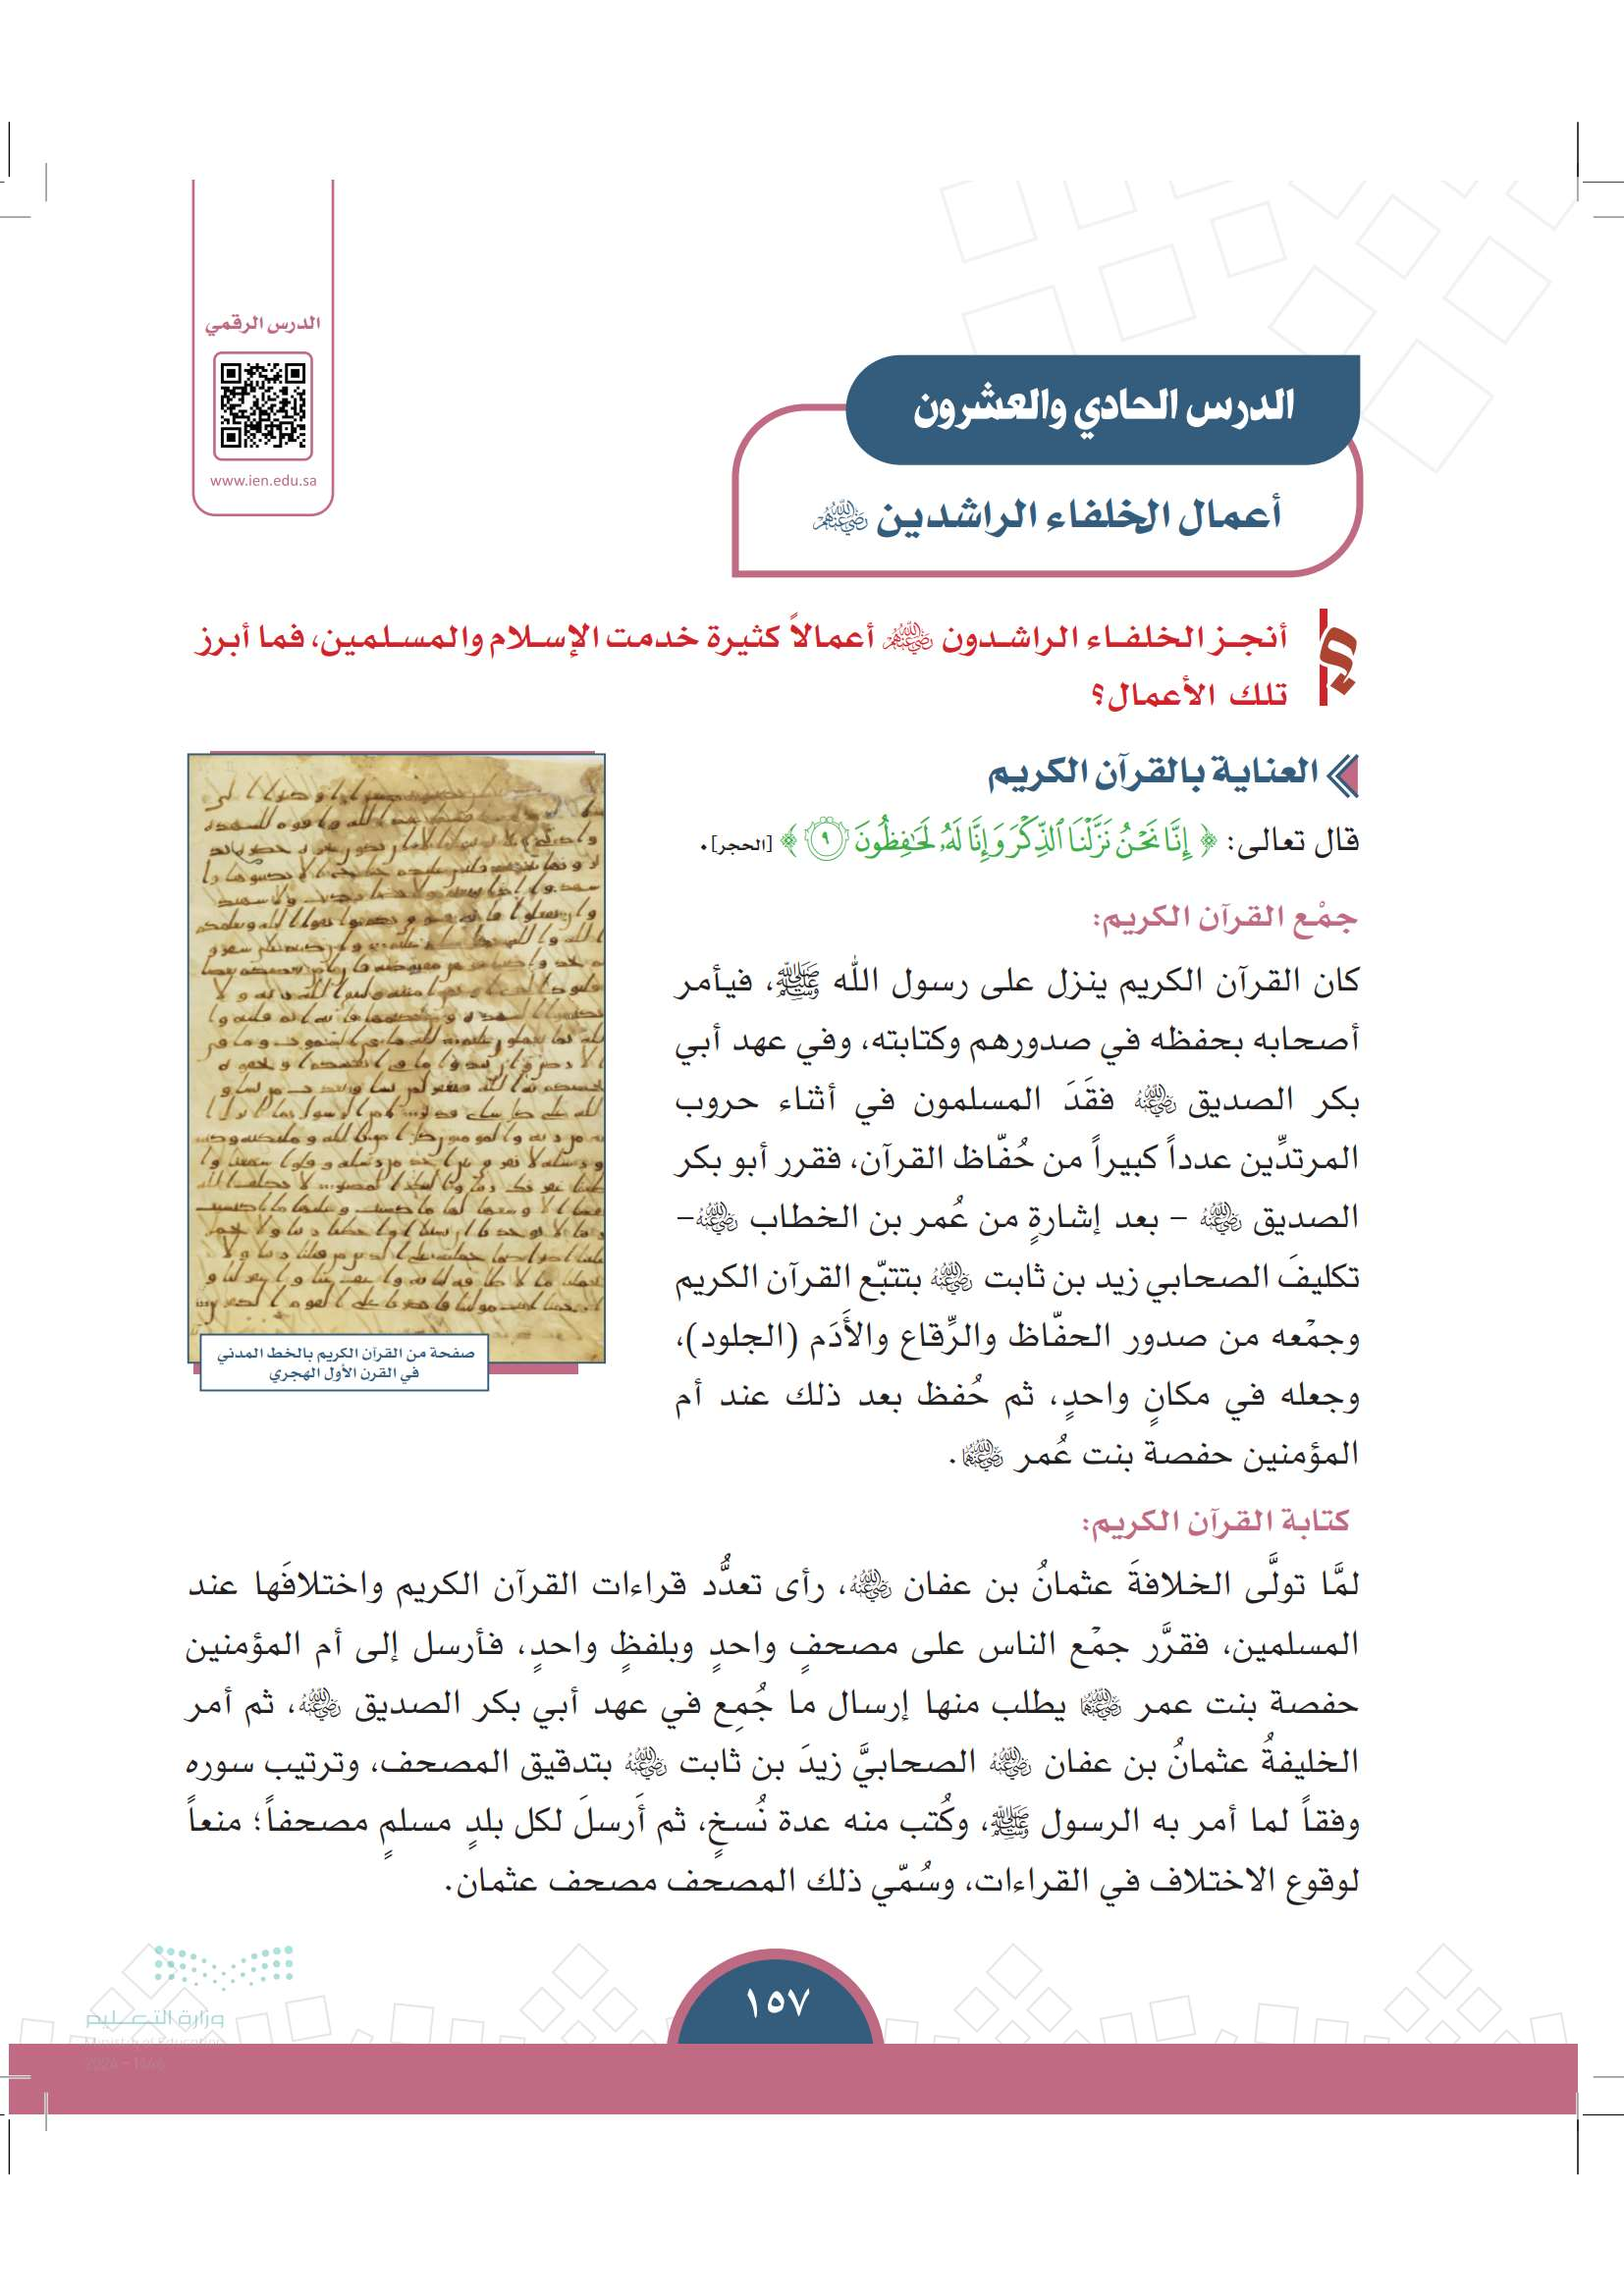 الدرس الرقمي
www.ien.edu.sa
الدرس الحادي والعشرون
أعمال الخلفاء الراشدين رضي الله عنهم
أنجـز الخلفـاء الراشـدون رضي الله عنهم أعمالاً كثيرة خدمت الإسـلام والمسـلمين، فما أبرز
تلك الأعمال؟
العناية بالقرآن الكريم
قال تعالى: ﴿ إِنَّا نَحْنُ نَزَّلْنَا ٱلذِّكْرَ وَإِنَّا لَهُۥ لَحَٰفِظُونَ ٩ ﴾ [الحجر].
جمْع القرآن الكريم:
كان القرآن الكريم ينزل على رسول الله ﷺ، فيأمر
أصحابه بحفظه في صدورهم وكتابته، وفي عهد أبي
بكر الصديق رضي الله عنه فقَدَ المسلمون في أثناء حروب
المرتدِّين عدداً كبيراً من حُفّاظ القرآن، فقرر أبو بكر
الصديق رضي الله عنه – بعد إشارةٍ من عُمر بن الخطاب رضي الله عنه –
تكليفَ الصحابي زيد بن ثابت رضي الله عنه بتتبّع القرآن الكريم
وجمْعه من صدور الحفّاظ والرِّقاع والأَدَم (الجلود)،
وجعله في مكانٍ واحدٍ، ثم حُفظ بعد ذلك عند أم
المؤمنين حفصة بنت عُمر رضي الله عنهما.
صفحة من القرآن الكريم بالخط المدني
في القرن الأول الهجري
كتابة القرآن الكريم:
لمَّا تولَّى الخلافةَ عثمانُ بن عفان رضي الله عنه، رأى تعدُّد قراءات القرآن الكريم واختلافَها عند
المسلمين، فقرَّر جمْع الناس على مصحفٍ واحدٍ وبلفظٍ واحدٍ، فأرسل إلى أم المؤمنين
حفصة بنت عمر رضي الله عنهما يطلب منها إرسال ما جُمِع في عهد أبي بكر الصديق رضي الله عنه، ثم أمر
الخليفةُ عثمانُ بن عفان رضي الله عنه الصحابيَّ زيدَ بن ثابت رضي الله عنه بتدقيق المصحف، وترتيب سوره
وفقاً لما أمر به الرسول ﷺ، وكُتب منه عدة نُسخٍ، ثم أَرسلَ لكل بلدٍ مسلمٍ مصحفاً؛ منعاً
لوقوع الاختلاف في القراءات، وسُمّي ذلك المصحف مصحف عثمان.
١٥٧
وزارة التعـليم
Ministry of Education
2024 - 1446